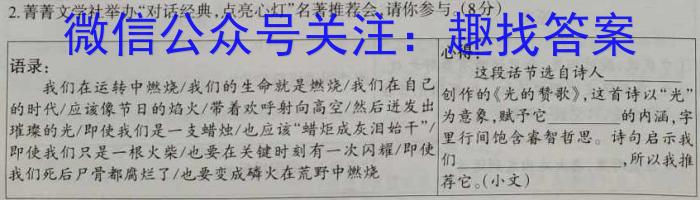 2.菁菁文学社举办“对话经典,点亮心灯”名著推荐会,请你参与。(8分)
微信公众号关注：趣找答案
语录:
我们在运转中燃烧/我们的生命就是燃烧/我们在自己
的时代/应该像节日的焰火/带着欢呼射向高空/然后迸发出
璀璨的光/即使我们是一支蜡烛/也应该“蜡炬成灰泪始干”/
即使我们只是一根火柴/也要在关键时刻有一次闪耀/即使
我们死后尸骨都腐烂了/也要变成磷火在荒野中燃烧
心得:
这段话节选自诗人
创作的《光的赞歌》,这首诗以“光”
为意象,赋予它 的内涵,字
里行间饱含睿智哲思。诗句启示我
们 ,所以我推
荐它。(小文)